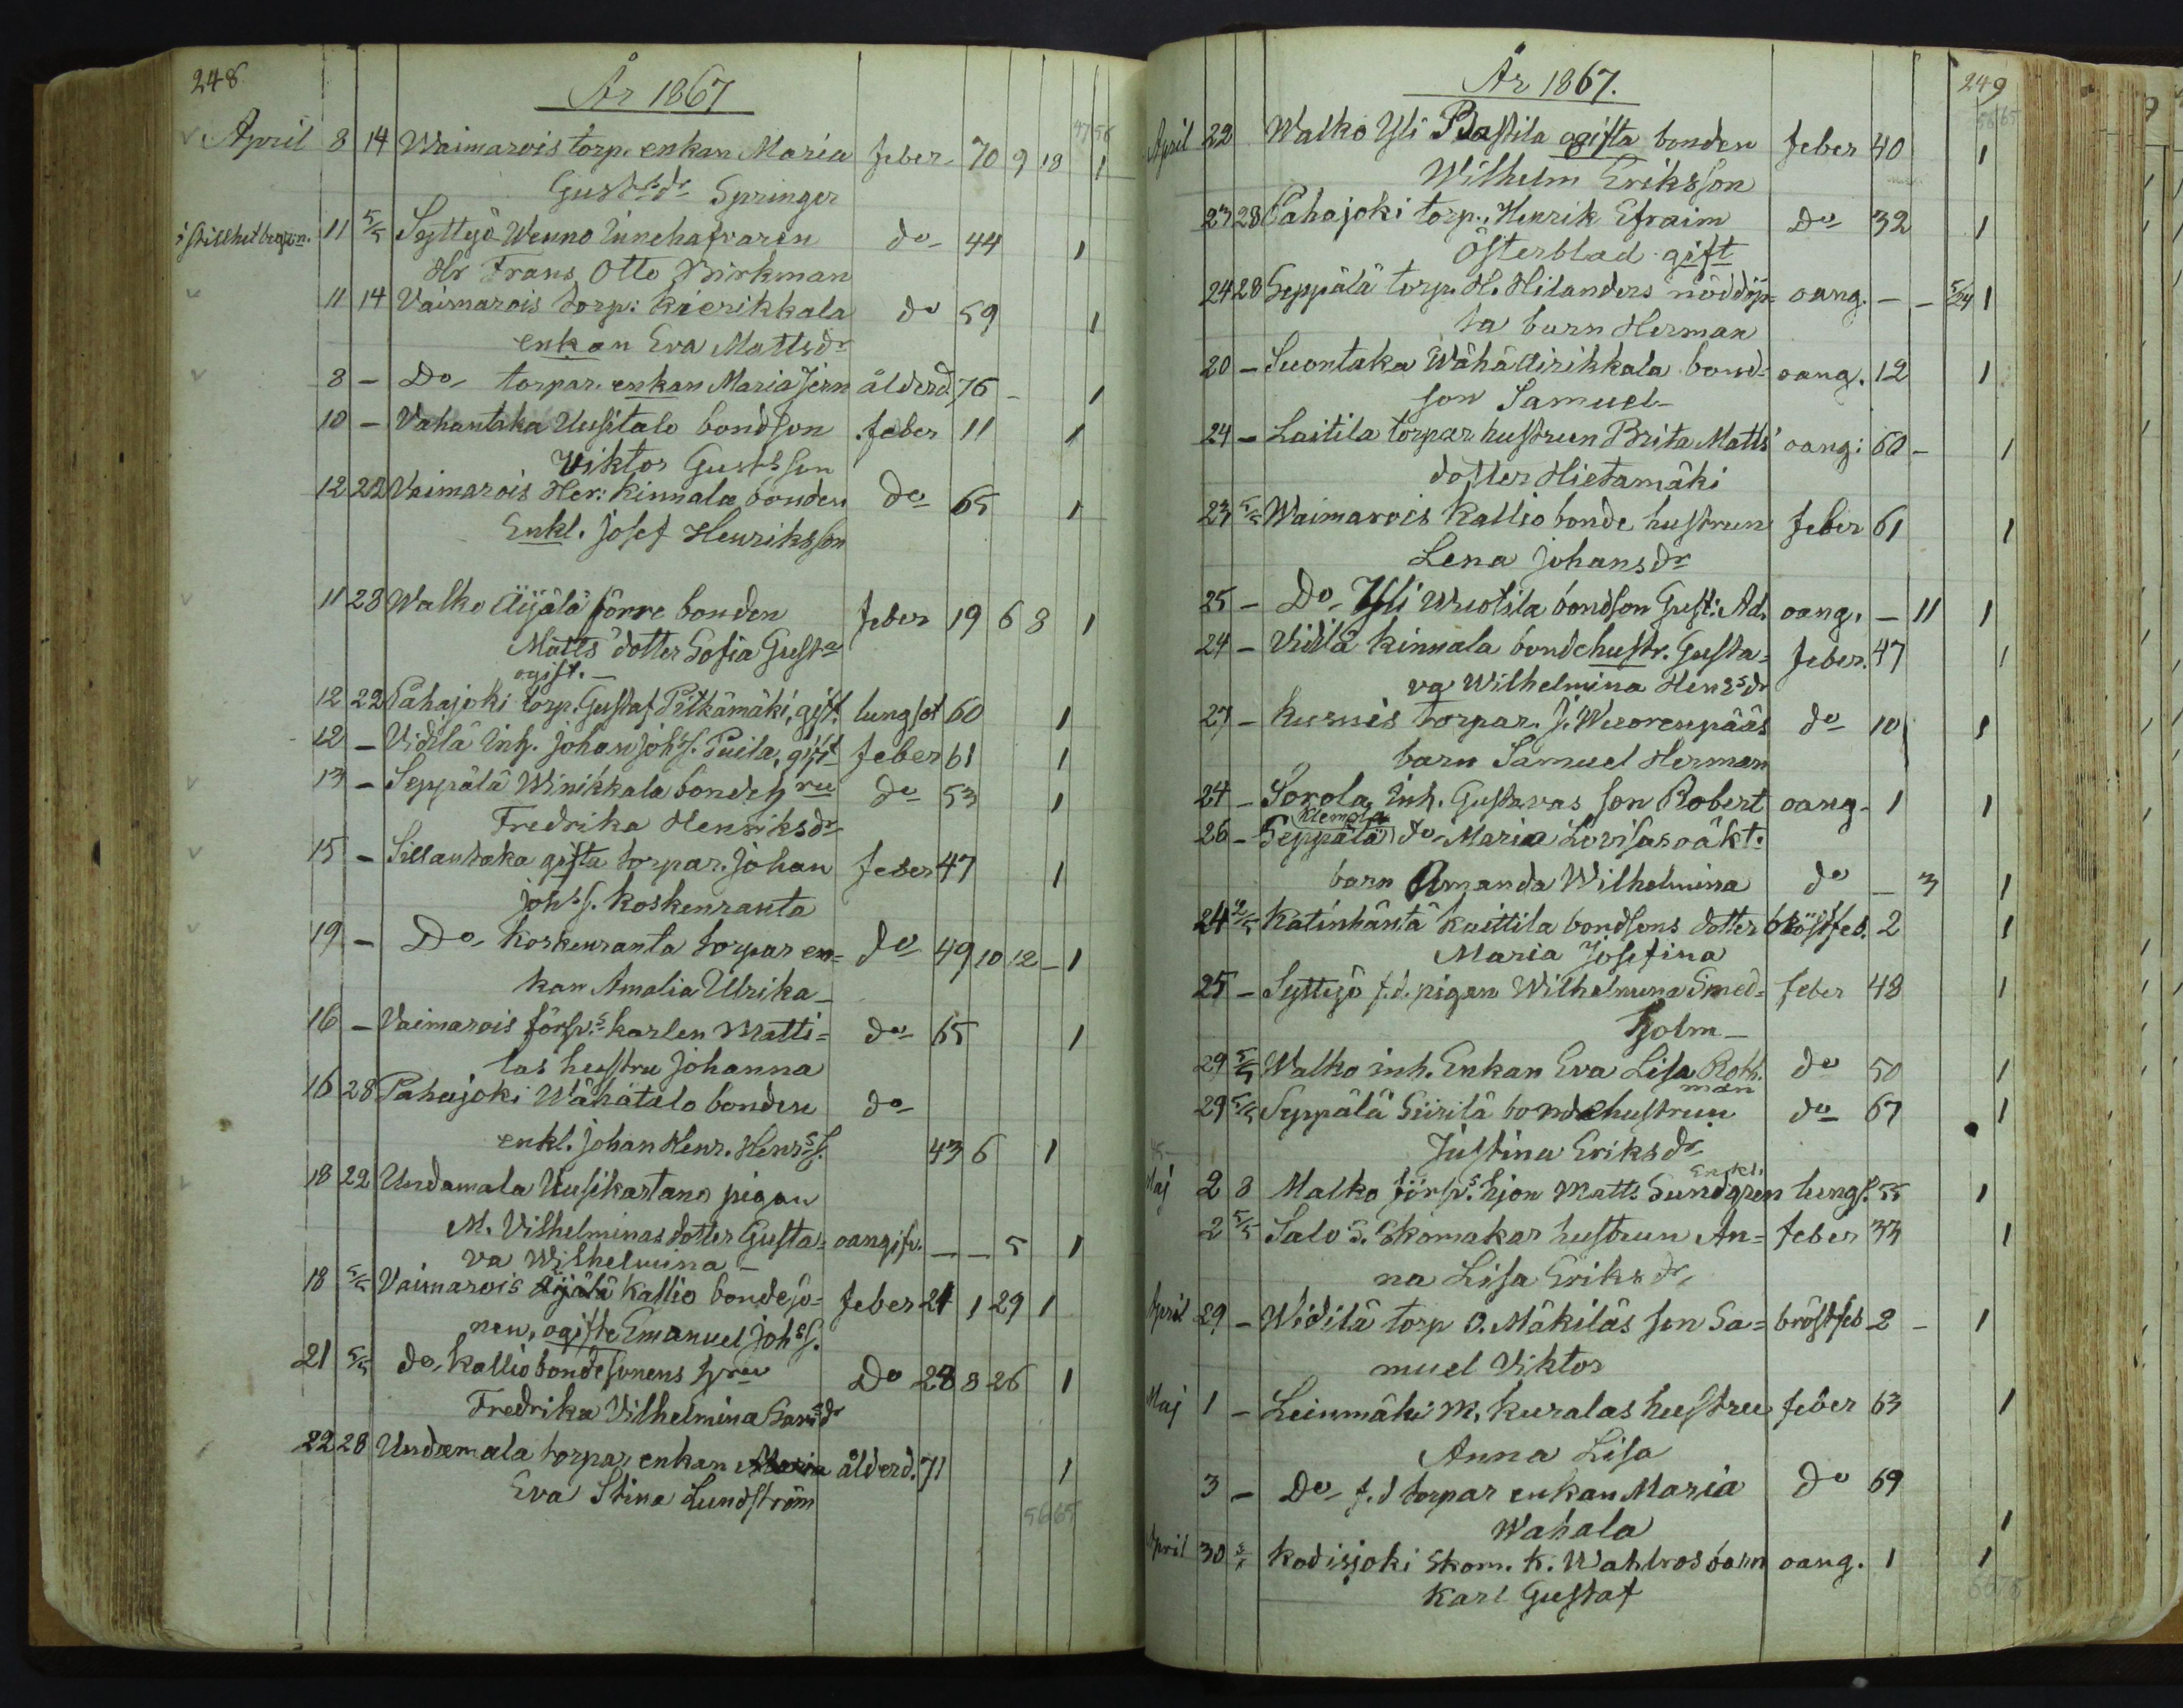 248
År 1867
57 56
April 8 14 Waimarois torp. enkan Maria feber 70 9 18 1
Gustsdr Springer
i stillhet begrn. 11 5/5 Syttyö Wenno Innehafvaren do 44 1
Hr Frans Otto Birkman
11 14 Vaimarois torp: Kierikkala do 59 1
enkan Eva Mattsdr
8 - Do torpar. enkan Maria Jern ålderd. 76 - 1
10 - Vahantaka Uusitalo bondson feber 11 1
Viktor Gustsson
12 22 Vaimarois Her: Kinnala bonden do 65 1
Enkl. Josef Henriksson
11 28 Walko Äijälä förre bonden feber 19 6 8 1
Matts dotter Sofia Gusta
ogift. -
12 22 Pahajoki torp. Gustaf Pitkämäki, gift. lungsot 60 1
12 - Vidilä Inh. Johan Johs. Puila, gift feber 61 1
13 - Seppälä Winikkala bondehru do 53 1
Fredrika Henriksdr
15 - Sillantaka gifta torpar. Johan feber 47 1
Johss. Koskenranta
19 - Do Koskenranta torpar en= do 49 10 12 - 1
kan Amalia Ulrika -
16 - Vaimarois försv.s karlen Matti= do 65 1
las hustru Johanna
16 28 Pahajoki Wähätalo bonden do
enkl. Johan Henr. Henrss. 43 6 1
18 22 Undamala Uusikartano pigan
M. Vilhelminas dotter Gusta= oangifv. - - 5 1
va Wilhelmina -
18 5/5 Vaimarois Äijälä Kallio bondesö= feber 24 1 29 1
nen, ogifte Emanuel Johss.
21 5/5 do Kallio bondesonens hru Do 28 8 26 1
Fredrika Vilhelmina Garsdr
22 28 Undamala torpar enkan Maria ålderd. 71 1
Eva Stina Lundström
5665
År 1867.
249
5665
April 22 Walko Yli Plastila ogifta bonden feber 40 1
Wilhelm Eriksson
23 28 Pahajoki torp. Henrik Efraim Do 32 1
Österblad gift
24 28 Seppälä torp. H. Hilanders nöddöp= oang. - - 5/24 1
ta barn Herman
20 - Suontaka Wähättirikkala bond= oang. 12 1
son Samuel -
24 - Laitila torpar hustrun Brita Matts oang: 60 - 1
dotter Hietamäki
23 5/5 Waimarois Kallio bonde hustrun feber 61 1
Lena Johansdr
25 - Do Yli Wuotila bondson Gust: Ad. oang. - 11 1
24 - Vidilä Kinnala bondehustr. Gusta= feber. 47 1
va Wilhelmina Henrsdr
27 - Kurnis torpar. J. Wuorenpääs do 10 1
barn Samuel Herman
24 - Sorola, Inh. Gustavas son Robert oang - 1 1
Klemola
26 - Seppälä do Maria Lovisas oäkt.
barn Amanda Wilhelmina do - 3 1
24 12/5 Katinhäntä Knittila bondsons dotter bröstfeb. 2 1
Maria Josefina
25 - Syttyö f.d. pigan Wilhelmina Smed= feber 48 1
holm -
29 5/5 Walko inh. Enkan Eva Lisa Roth. do 50 1
man
29 5/5 Seppälä Siirilä bondehustrun do 67 1
Justina Eriksdr
Maj 2 8 Malko försv.s hjon Matts Sundgren Enkl. lungs. 55 1
2 5/5 Salo S. Skomakar hustrun An= feber 33 1
na Lisa Eriksdr
April 29 - Widilä torp O. Mäkiläs son Sa= bröstfeb 2 - 1
muel Viktor
Maj 1 - Leinmäki M. Kuralas hustru feber 63 1
Anna Lisa
3 - Do f.d torpar enkan Maria do 69
Wahala 1
April 30 Kodisjoki Skom. K. Wahlros barn oang. 1 1
Karl Gustaf